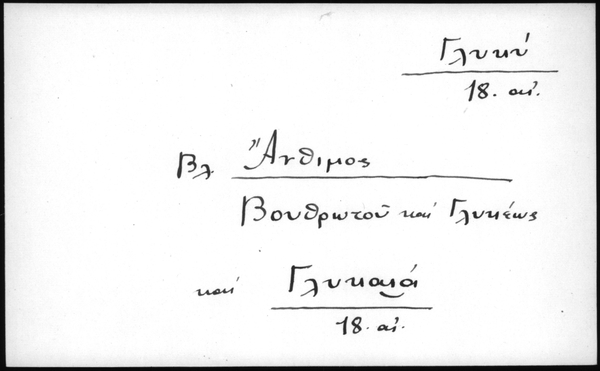 Γλυκύ
18. αἰ.
Βλ Ἄνθιμος
Βουθρωτοῦ καί Γλυκέως
καί Γλυκαρά
18. αἰ.